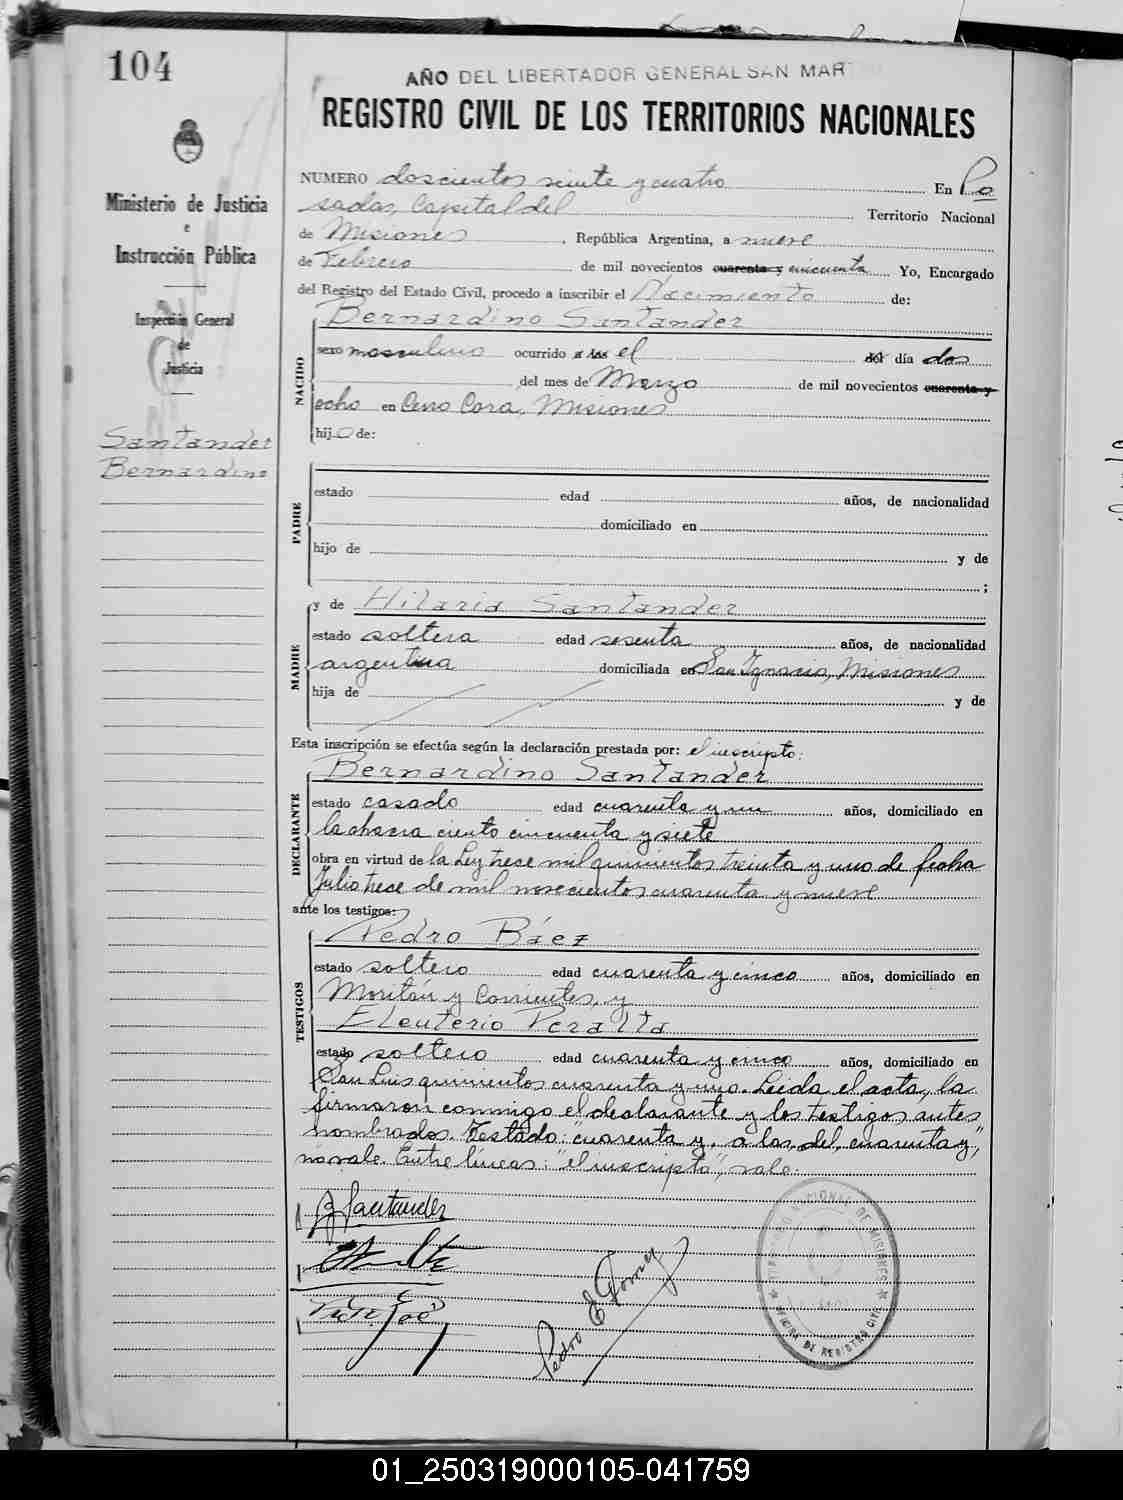 104
AÑO DEL LIBERTADOR GENERAL SAN MAR
REGISTRO CIVIL DE LOS TERRITORIOS NACIONALES
Ministerio de Justicia
e
Instrucción Pública
Inspección General
de
Justicia
Santander
Bernardino
NUMERO doscientos veinte y cuatro En Po
sadas, Capital del Territorio Nacional
de Misiones, República Argentina, a nueve
de Febrero de mil novecientos cuarenta y cincuenta Yo, Encargado
del Registro del Estado Civil, procedo a inscribir el Nacimiento de:
NACIDO
Bernardino Santander
sexo masculino ocurrido a las el del día dos
del mes de Marzo de mil novecientos cuarenta y
ocho en Cerro Cora, Misiones
hijo de:
PADRE
estado edad años, de nacionalidad
domiciliado en
hijo de y de
;
MADRE
y de Hilaria Santander
estado soltera edad sesenta años, de nacionalidad
argentina domiciliada en San Ignacio, Misiones
hija de y de
Esta inscripción se efectúa según la declaración prestada por: el inscripto:
DECLARANTE
Bernardino Santander
estado casado edad cuarenta y un años, domiciliado en
la chacra ciento cincuenta y siete
obra en virtud de la Ley trece mil quinientos treinta y uno de fecha
Julio trece de mil novecientos cuarenta y nueve
ante los testigos:
TESTIGOS
Pedro Báez
estado soltero edad cuarenta y cinco años, domiciliado en
y Corrientes, y
Eleuterio Peralta
estado soltero edad cuarenta y cinco años, domiciliado en
San Luis quinientos cuarenta y uno. Leida el acta, la
firmaron conmigo el declarante y los testigos antes
nombrados. Testado: "cuarenta y, a las, del, cuarenta y",
no vale. Entre líneas: "el inscripto", vale.
B Santander
Pedro E Gomez
NACIONAL DE MISIONES
OFICINA DE REGISTRO CIVIL
01_250319000105-041759